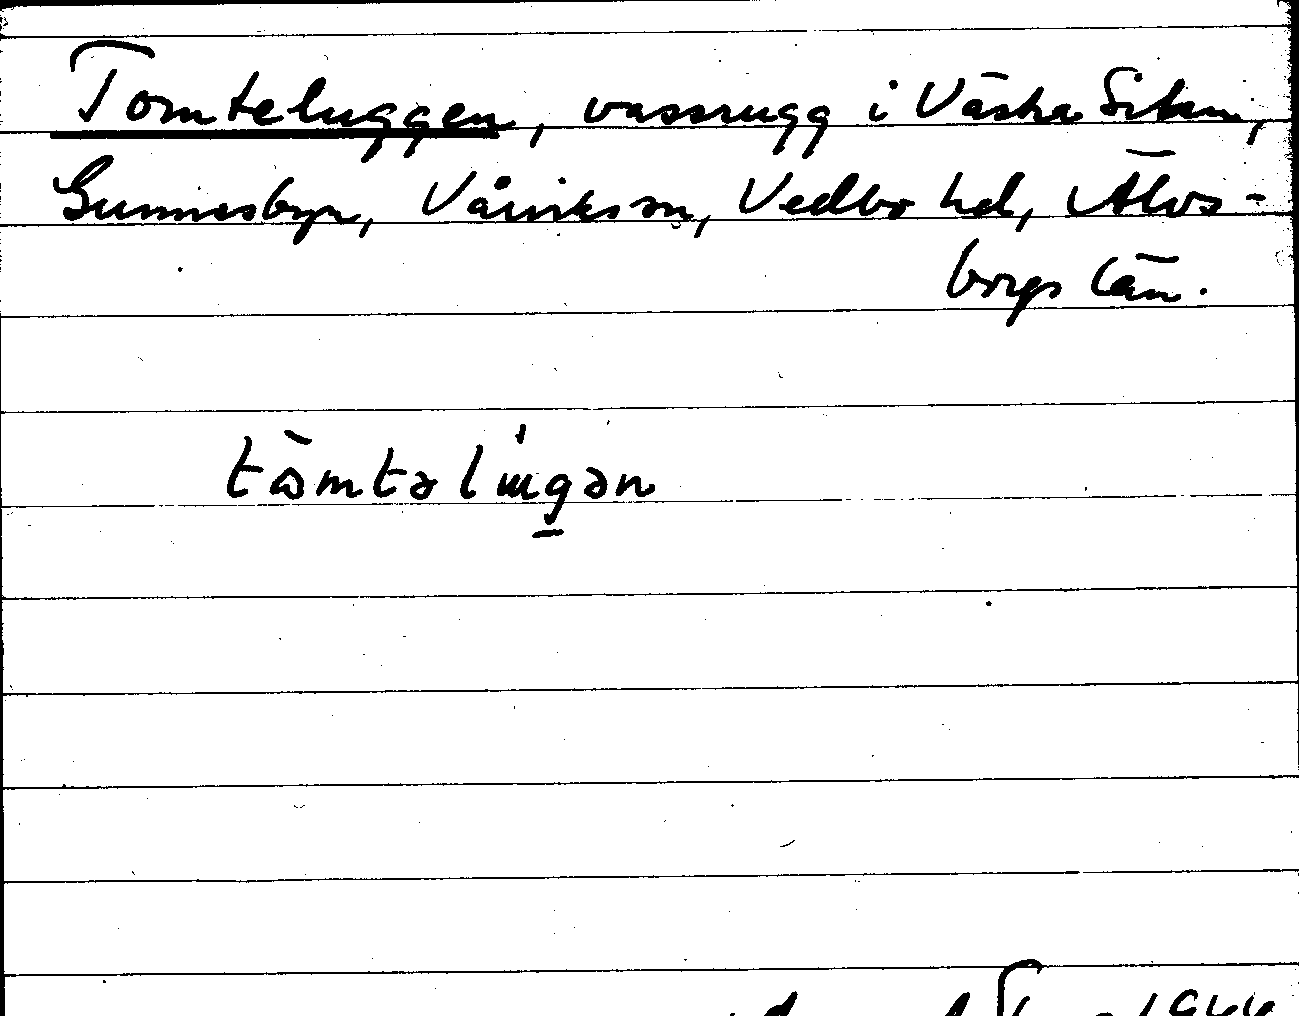 Tomteluggen, vassrugg i Västra Silen,
Gunnesbyn, Vårviks sn, Vedbo hd, Älvs-
borgs län.
tɷ̀mtəlɯ́gən